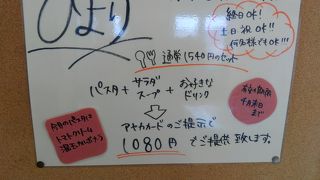 ひより
終日OK!
土日祝OK!!
何名様でもOK!!!
通常1540円のセット
パスタ + サラダ スープ + お好きな ドリンク
今月のパスタは
トマトクリーム
アヤカカードのご提示で
1080円 でご提供致します。
まで